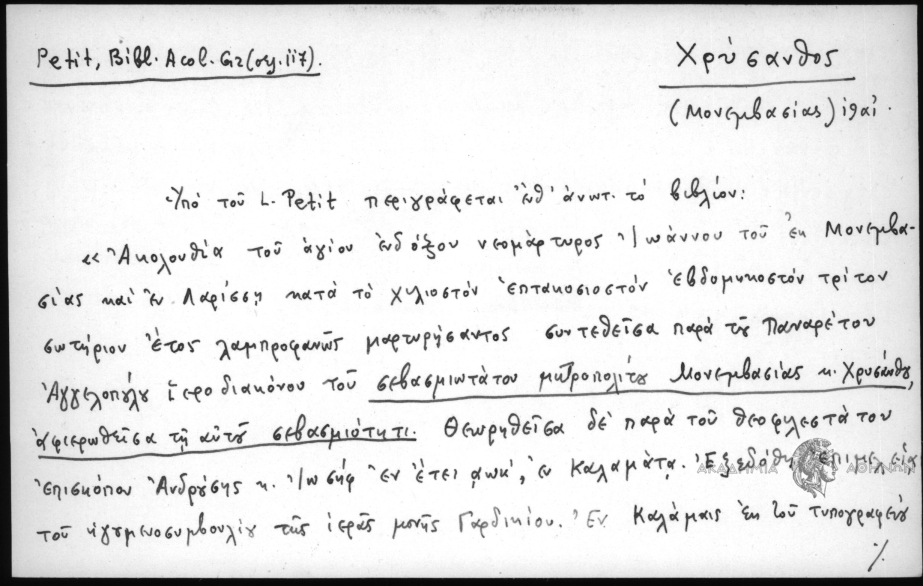 Petit, Bibl. Acol. Gr (σχ. 117).
Χρύσανθος
(Μονεμβασίας) ιθαί.
Ὑπὸ τοῦ L. Petit περιγράφεται ἔνθ' ἀνωτ. τὸ βιβλίον:
«Ἀκολουθία τοῦ ἁγίου ἐνδόξου νεομάρτυρος Ἰωάννου τοῦ ἐκ Μονεμβα-
σίας καὶ ἐν Λαρίσσῃ κατὰ τὸ χιλιοστόν ἑπτακοσιοστόν ἑβδομηκοστόν τρίτον
σωτήριον ἔτος λαμπροφανῶς μαρτυρήσαντος συντεθεῖσα παρὰ τοῦ Παναρέτου
Ἀγγελοπούλου ἱεροδιακόνου τοῦ σεβασμιωτάτου μητροπολίτου Μονεμβασίας κ. Χρυσάνθου,
ἀφιερωθεῖσα τῇ αὐτοῦ σεβασμιότητι. Θεωρηθεῖσα δὲ παρὰ τοῦ θεοφιλεστάτου
ἐπισκόπου Ἀνδρούσης κ. Ἰωσήφ ἐν ἔτει αωκ', ἐν Καλαμάτᾳ. Ἐξεδόθη ἐπιμελείᾳ
τοῦ ἡγουμενοσυμβουλίου τῆς ἱερᾶς μονῆς Γαρδικίου. Ἐν Καλάμαις ἐκ τοῦ τυπογραφείου
%
ΑΚΑΔΗΜΙΑ ΑΘΗΝΩΝ